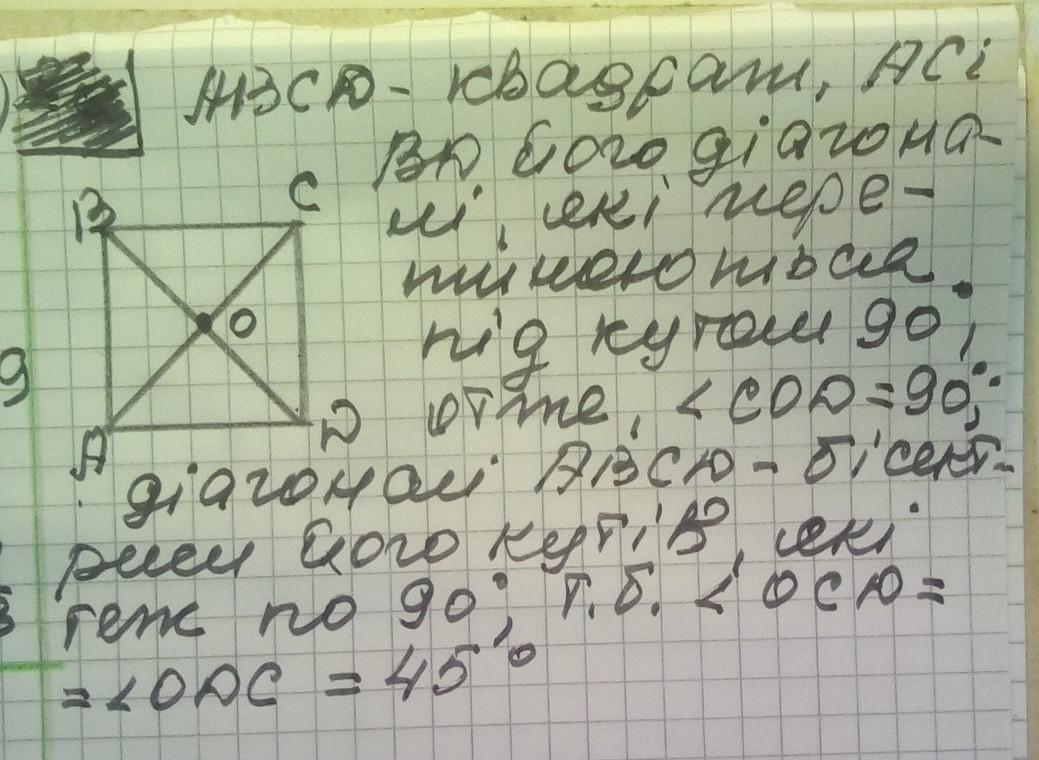 АВСD - квадрат, АС і
ВD його діагона-
лі, які пере-
тинаються
під кутом 90°,
отже, <COD = 90°;
В
С
О
А
D
діагоналі АВСD - бісект-
риси його кутів, які
теж по 90°, т.б. < ОСD =
= <ОDС = 45°
9